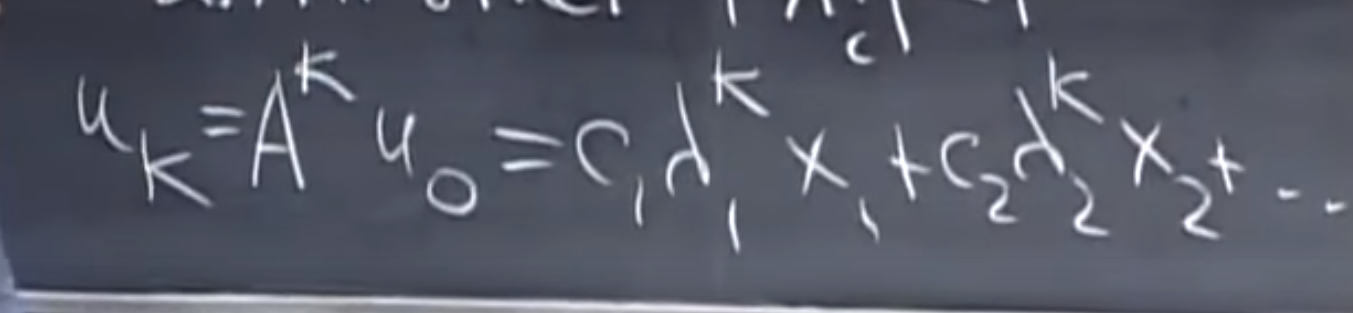 u_k = A^k u_0 = c_1 λ_1^k x_1 + c_2 λ_2^k x_2 + ...